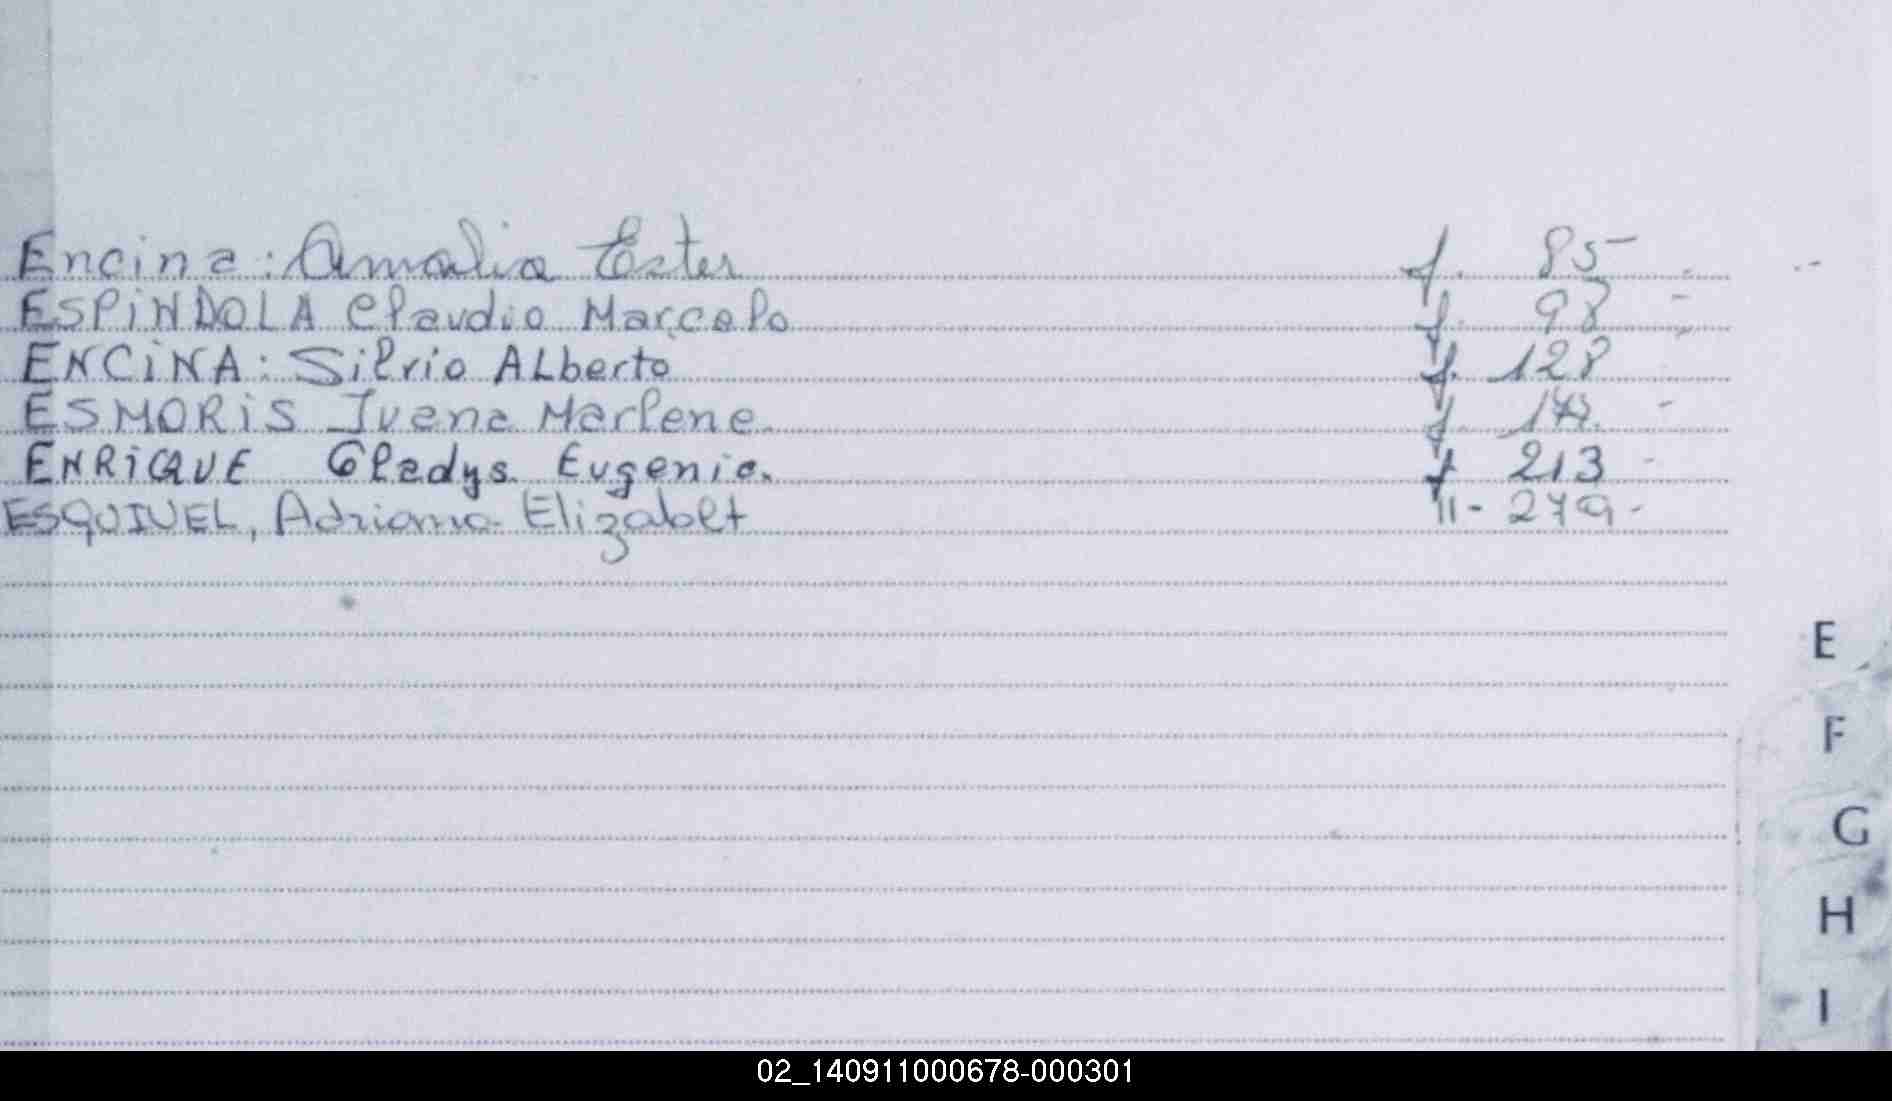 Encina: Amalia Ester f. 85
ESPiNDOLA Claudio Marcelo f. 98 -
ENCiNA: Silvio ALberto f. 128
ESMORiS Ivana Marlene. f. -
ENRiQUE Gladys. Eugenia. f 213 -
ESQUIVEL, Adriana Elizabet 11 - 279 -
E
F
G
H
I
02_140911000678-000301